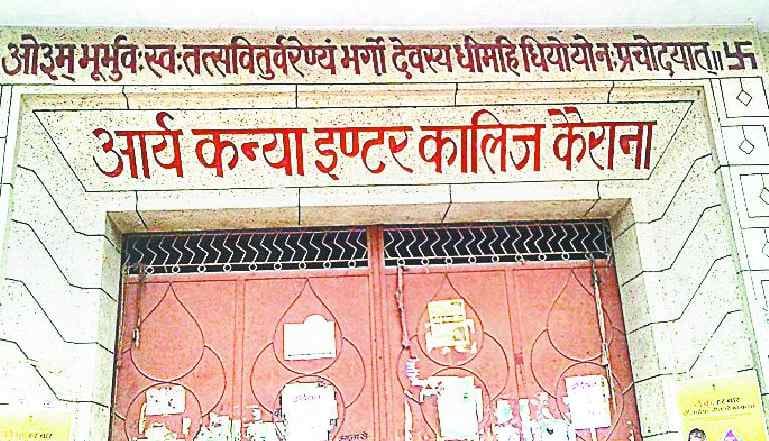 ओ३म् भूर्भुवः स्वः तत्सवितुर्वरेण्यं भर्गो देवस्य धीमहि धियो योनः प्रचोदयात्॥ 卐
आर्य कन्या इण्टर कालिज कैराना